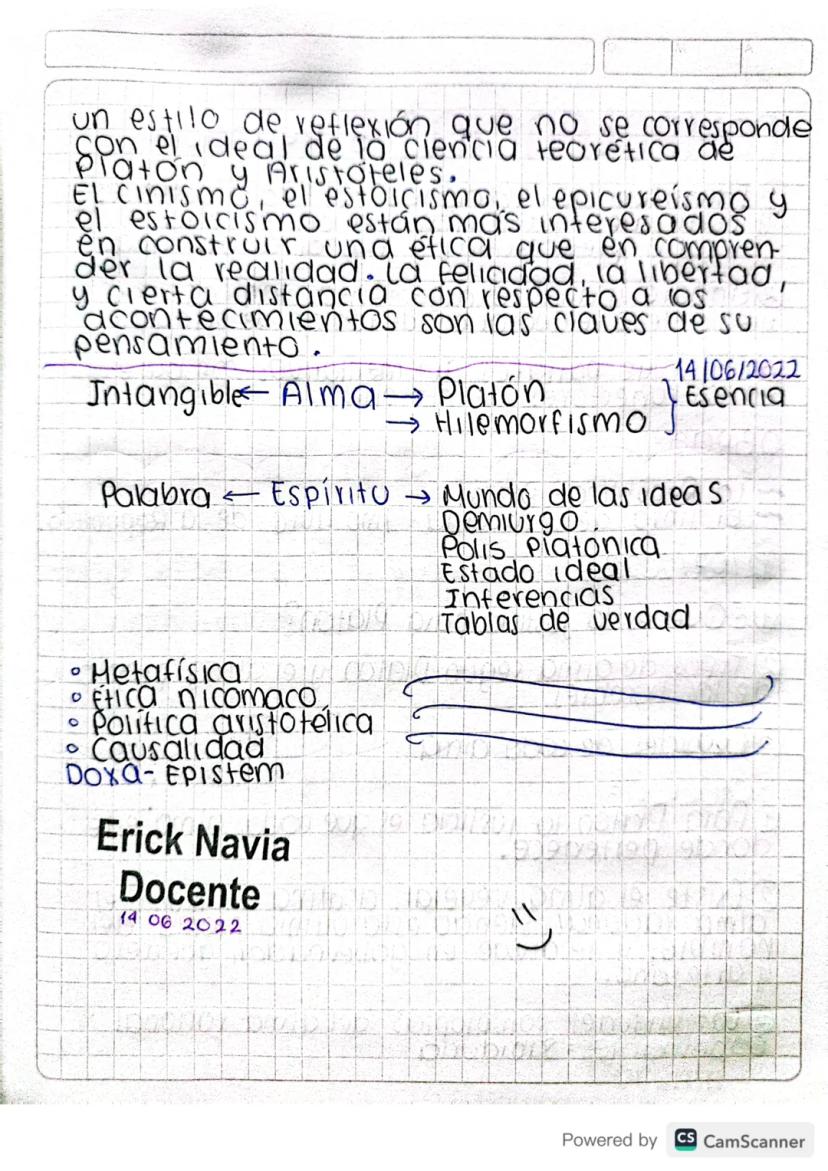 un estilo de reflexión que no se corresponde
con el ideal de la ciencia teorética de
Platón y Aristóteles.
El cinismo, el estoicismo, el epicureísmo y
el estoicismo están más interesados
en construir una ética que en compren-
der la realidad. La felicidad, la libertad,
y cierta distancia con respecto a los
acontecimientos son las claves de su
pensamiento.
14/06/2022
Intangible ← Alma → Platón } Esencia
→ Hilemorfismo
Palabra ← Espíritu → Mundo de las ideas
Demiurgo.
Polis Platónica
Estado ideal
Inferencias
Tablas de verdad
° Metafísica
° Ética nicomaco
° Política aristotélica
° Causalidad
Doxa- Epistem
Erick Navia
Docente
14 06 2022
Powered by CS CamScanner